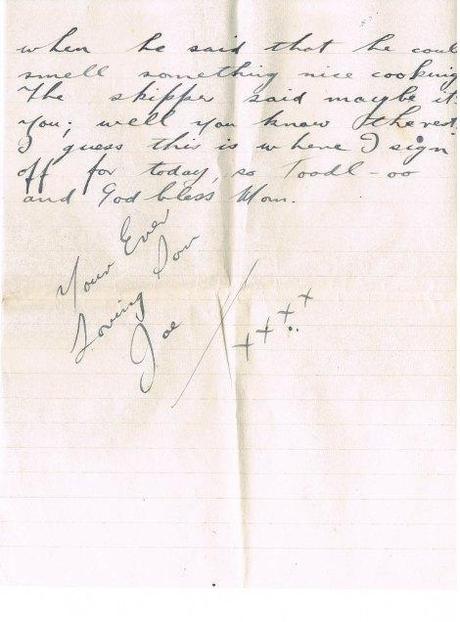 when he said that he coul
smell something nice cooking
The skipper said maybe it
you; well you know the rest.
I guess this is where I sign
off for today, so Toodl-oo
and God bless Mom.
Your Ever
Loving Son
Joe
x x x x